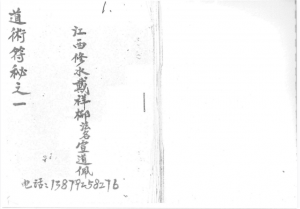 1.
江西修水戴祥柳法名宣道佩
道術符秘之一
电话:13879258276